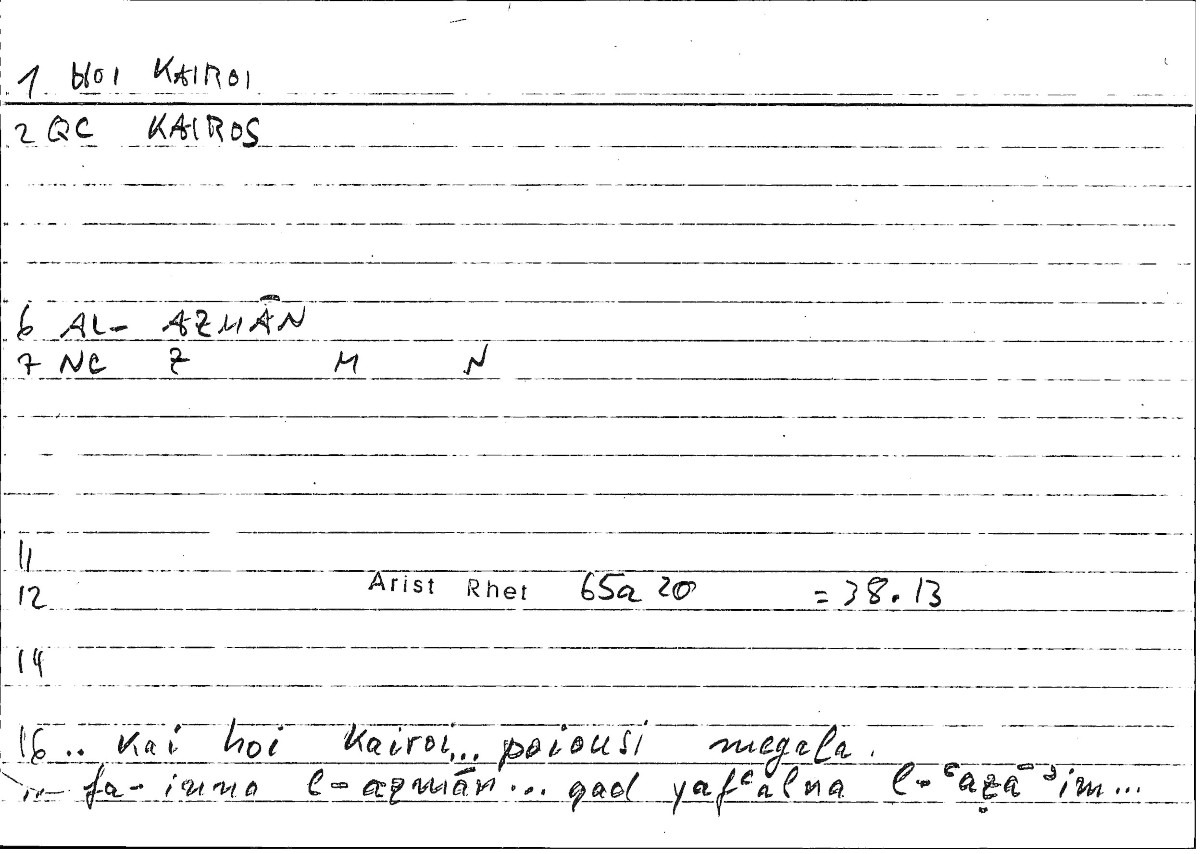 1 HOI KAIROI
2 QC KAIROS
6 AL- AZMĀN
7 NC Z M N
11
12 Arist Rhet 65a 20 = 38.13
14
16 .. kai hoi kairoi... poiousi megala.
... fa-inna l-azmān... qad yafʿalna l-ʿaẓāʾim...